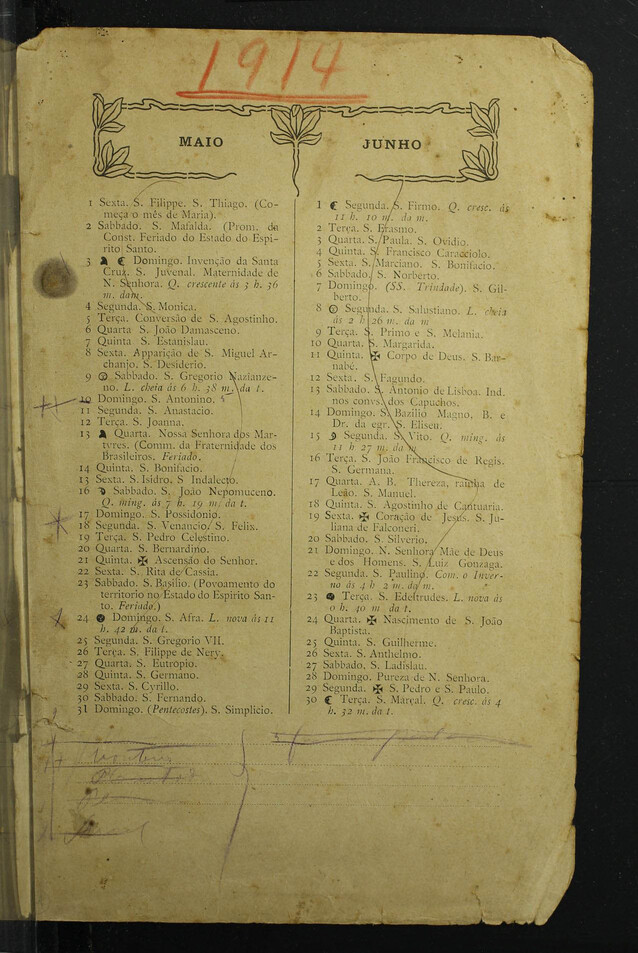 1914
MAIO
1 Sexta. S. Filippe. S. Thiago. (Co-
meça o mês de Maria).
2 Sabbado. S. Mafalda. (Prom. da
Const. Feriado do Estado do Espi-
rito Santo.
3 Domingo. Invenção da Santa
Cruz. S. Juvenal. Maternidade de
N. Senhora. Q. crescente ás 3 h. 36
m. dam.
4 Segunda. S. Monica.
5 Terça. Conversão de S. Agostinho.
6 Quarta S. João Damasceno.
7 Quinta S. Estanislau.
8 Sexta. Apparição de S. Miguel Ar-
chanjo. S. Desiderio.
9 Sabbado. S. Gregorio Nazianze-
no. L. cheia ás 6 h. 38 m. da t.
10 Domingo. S. Antonino.
11 Segunda. S. Anastacio.
12 Terça. S. Joanna.
13 Quarta. Nossa Senhora dos Mar-
tyres. (Comm. da Fraternidade dos
Brasileiros. Feriado.
14 Quinta. S. Bonifacio.
15 Sexta. S. Isidro. S Indalecio.
16 Sabbado. S. João Nepomuceno.
Q. ming. ás 7 h. 19 m. da t.
17 Domingo. S. Possidonio.
18 Segunda. S. Venancio. S. Felix.
19 Terça. S. Pedro Celestino.
20 Quarta. S. Bernardino.
21 Quinta. ✠ Ascensão do Senhor.
22 Sexta. S. Rita de Cassia.
23 Sabbado. S. Basilio. (Povoamento do
territorio no Estado do Espirito San-
to. Feriado.)
24 Domingo. S. Afra. L. nova ás 11
h. 42 m. da t.
25 Segunda. S. Gregorio VII.
26 Terça. S. Filippe de Nery.
27 Quarta. S. Eutropio.
28 Quinta. S. Germano.
29 Sexta. S. Cyrillo.
30 Sabbado. S. Fernando.
31 Domingo. (Pentecostes). S. Simplicio.
JUNHO
1 Segunda. S. Firmo. Q. cresc. ás
11 h. 10 m. da m.
2 Terça. S. Erasmo.
3 Quarta. S. Paula. S. Ovidio.
4 Quinta. S. Francisco Caracciolo.
5 Sexta. S. Marciano. S. Bonifacio.
6 Sabbado. S. Norberto.
7 Domingo. (SS. Trindade). S. Gil-
berto.
8 Segunda. S. Salustiano. L. cheia
ás 2 h 26 m. da m
9 Terça. S. Primo e S. Melania.
10 Quarta. S. Margarida.
11 Quinta. ✠ Corpo de Deus. S. Bar-
nabé.
12 Sexta. S. Fagundo.
13 Sabbado. S. Antonio de Lisboa. Ind.
nos convs. dos Capuchos.
14 Domingo. S. Bazilio Magno, B. e
Dr. da egr. S. Eliseu.
15 Segunda. S. Vito. Q. ming. ás
11 h 27 m. da m
16 Terça. S. João Francisco de Regis.
S. Germana.
17 Quarta. A. B. Thereza, rainha de
Leão. S. Manuel.
18 Quinta. S. Agostinho de Cantuaria.
19 Sexta. ✠ Coração de Jesus. S. Ju-
liana de Falconeri.
20 Sabbado. S. Silverio.
21 Domingo. N. Senhora Mãe de Deus
e dos Homens. S. Luiz Gonzaga.
22 Segunda. S. Paulino. Com. o Inver-
no ás 4 h 2 m. da m.
23 Terça. S. Edeltrudes. L. nova ás
0 h. 40 m da t.
24 Quarta. ✠ Nascimento de S. João
Baptista.
25 Quinta. S. Guilherme.
26 Sexta. S. Anthelmo.
27 Sabbado. S. Ladislau.
28 Domingo. Pureza de N. Senhora.
29 Segunda. ✠ S. Pedro e S. Paulo.
30 Terça. S. Marçal. Q. cresc. ás 4
h. 32 m. da t.